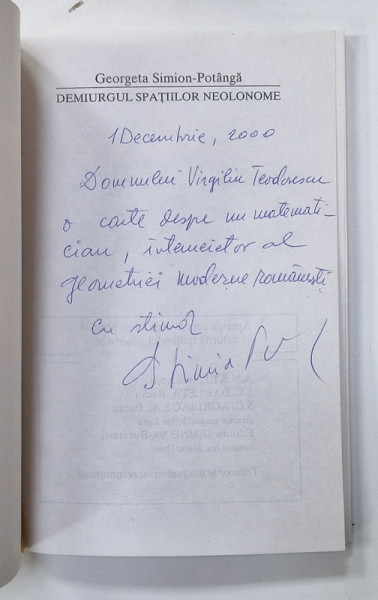 Georgeta Simion-Potângă
DEMIURGUL SPAȚIILOR NEOLONOME
1 Decembrie, 2000
Domnului Virgiliu Teodorescu
o carte despre un matemati-
cian, întemeietor al
geometriei moderne românești
cu stimă